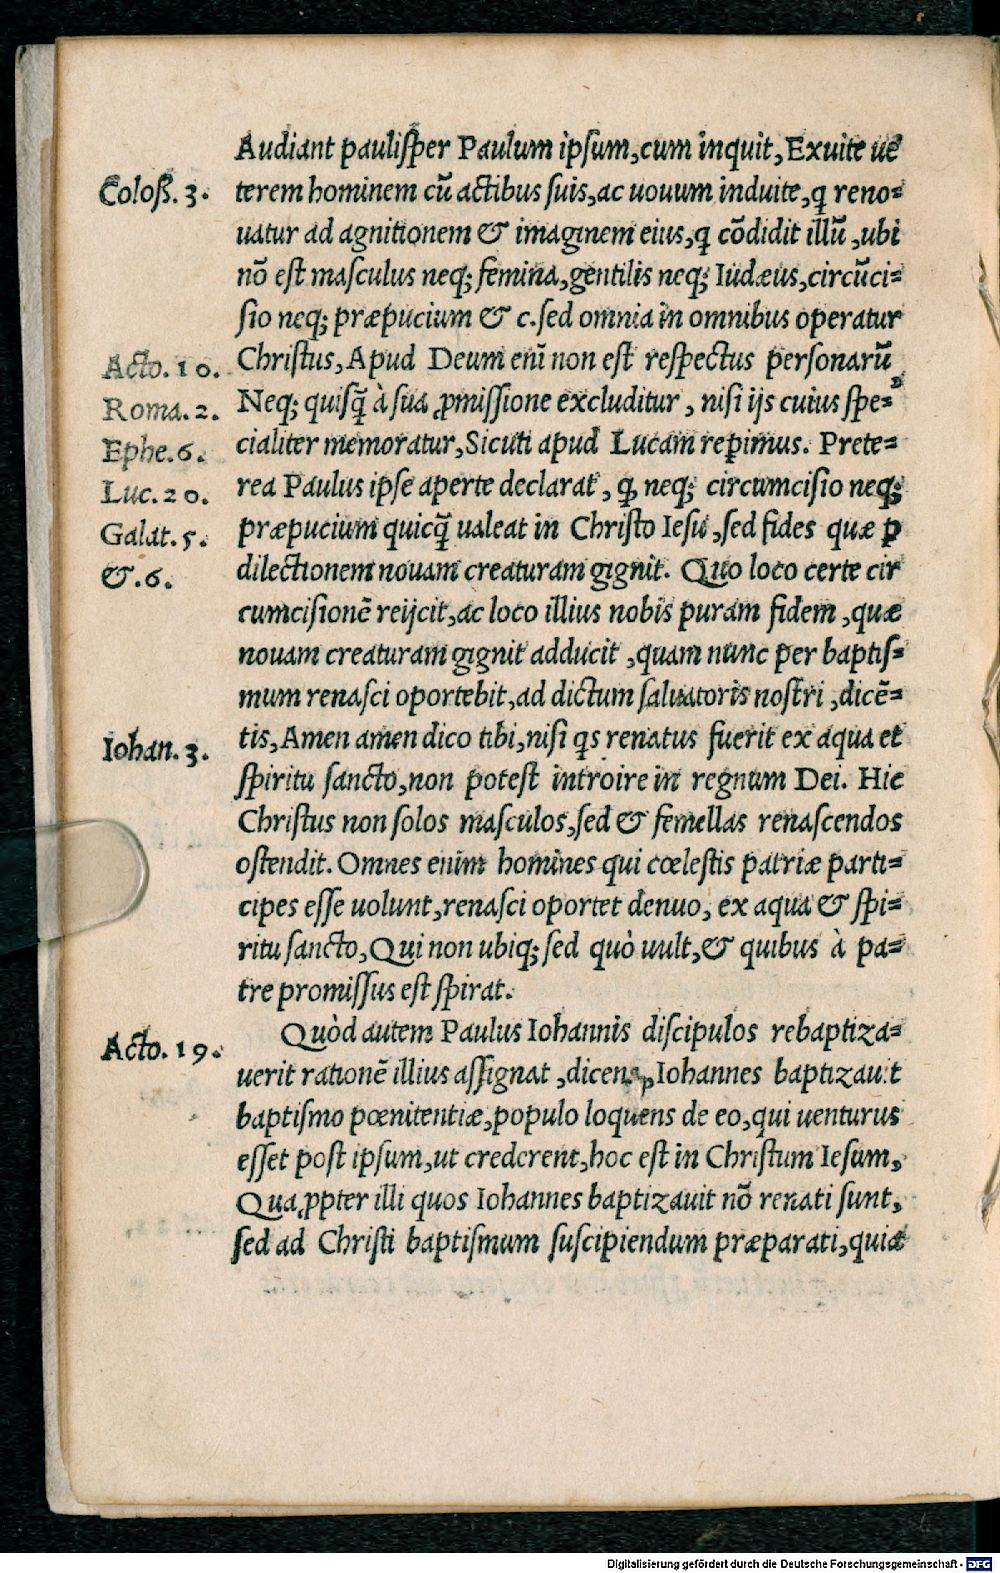 Audiant paulisper Paulum ipsum, cum inquit, Exuite ue
Coloß. 3. terem hominem cũ actibus suis, ac uouum induite, q reno=
uatur ad agnitionem & imaginem eius, q cõdidit illũ, ubi
nõ est masculus neq; femina, gentilis neq; Iudæus, circũci=
sio neq; præpucium & c. sed omnia in omnibus operatur
Acto. 10. Christus, Apud Deum enĩ non est respectus personarũ,
Roma. 2. Neq; quisq̃ à sua ꝓmissione excluditur, nisi ijs cuius spe=
Ephe. 6. cialiter memoratur, Sicuti apud Lucam repimus. Prete=
Luc. 20. rea Paulus ipse aperte declarat, ꝙ neq; circumcisio neq;
Galat. 5. præpucium quicq̃ ualeat in Christo Iesu, sed fides quæ ꝑ
&. 6. dilectionem nouam creaturam gignit. Quo loco certe cir
cumcisionẽ reijcit, ac loco illius nobis puram fidem, quæ
nouam creaturam gignit adducit, quam nunc per baptis=
mum renasci oportebit, ad dictum saluatoris nostri, dicẽ=
Iohan. 3. tis, Amen amen dico tibi, nisi qs renatus fuerit ex aqua et
spiritu sancto, non potest introire in regnum Dei. Hic
Christus non solos masculos, sed & femellas renascendos
ostendit. Omnes enim homines qui cœlestis patriæ parti=
cipes esse uolunt, renasci oportet denuo, ex aqua & spi=
ritu sancto, Qui non ubiq; sed quò uult, & quibus à pa=
tre promissus est spirat.
Quòd autem Paulus Iohannis discipulos rebaptiza=
Acto. 19. uerit rationẽ illius assignat, dicens, Iohannes baptizauit
baptismo pœnitentiæ, populo loquens de eo, qui uenturus
esset post ipsum, ut crederent, hoc est in Christum Iesum,
Quaꝓpter illi quos Iohannes baptizauit nõ renati sunt,
sed ad Christi baptismum suscipiendum præparati, quia
Digitalisierung gefördert durch die Deutsche Forschungsgemeinschaft - DFG